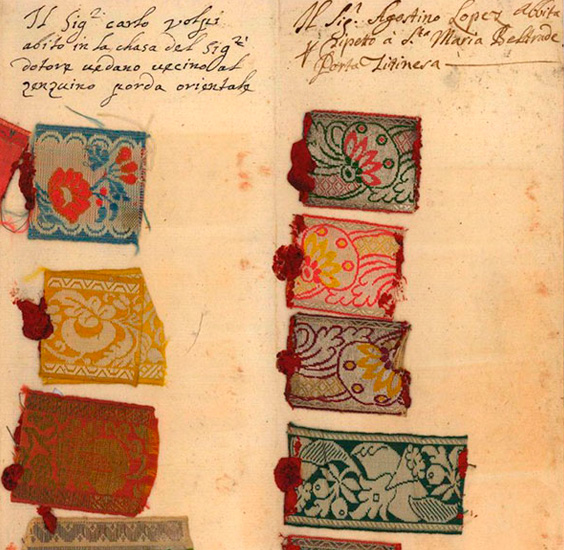 Il Sig.r carlo volpi
abito in la chasa del Sig.r
dotore vedano vecino al
zenzuino porda orientale
Il Sig.r Agostino Lopez abbita
ripeto à S.ta Maria Beltrade
Porta Titinesa